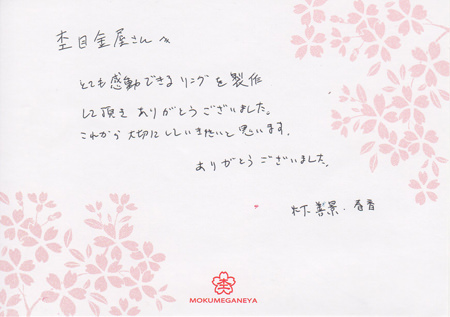 杢目金屋さんへ
とても感動できるリングを製作
して頂きありがとうございました。
これから大切にしていきたいと思います。
ありがとうございました。
木下
MOKUMEGANEYA